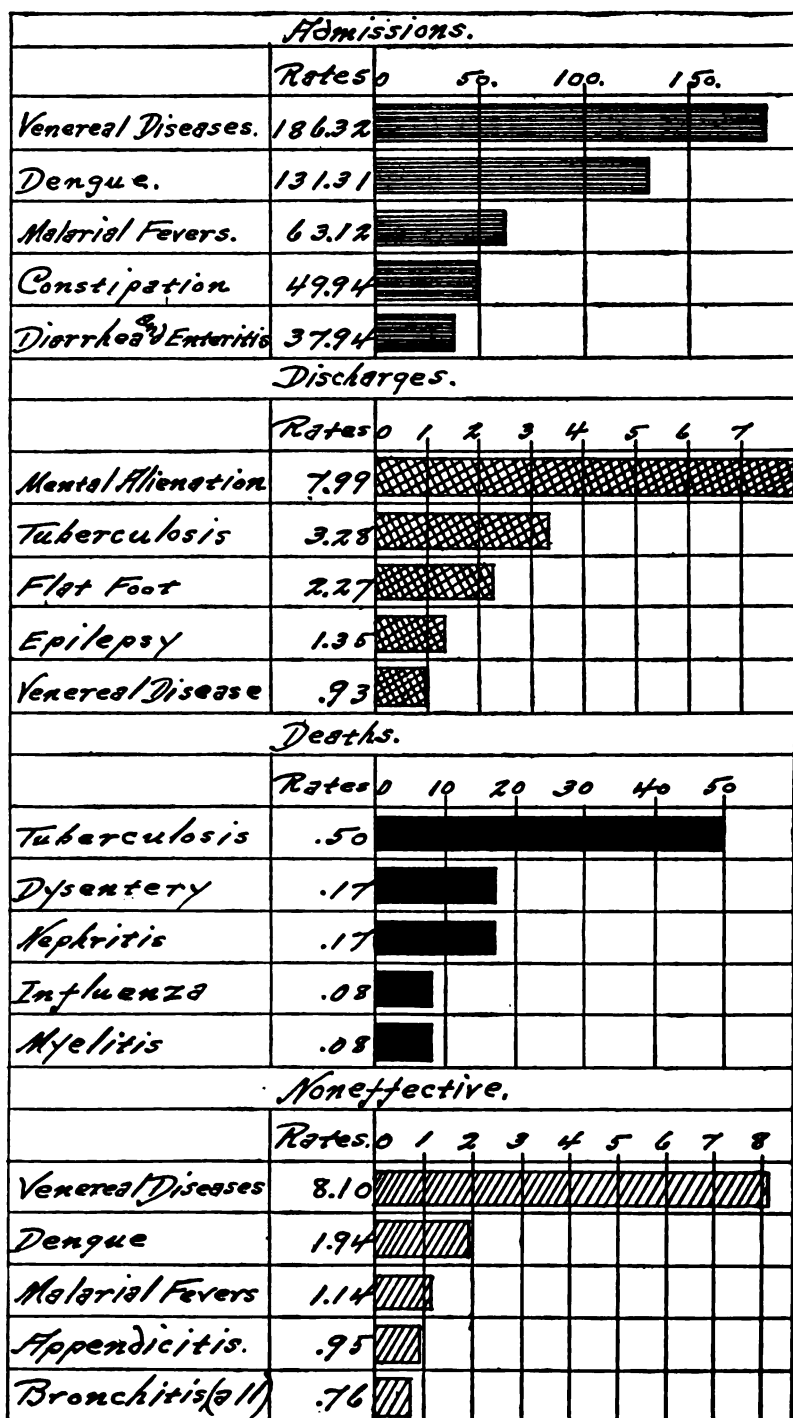 Admissions.
Rates 0 50. 100. 150.
Venereal Diseases. 186.32
Dengue. 131.31
Malarial Fevers. 63.12
Constipation 49.94
Diarrhea and Enteritis 37.94
Discharges.
Rates 0 1 2 3 4 5 6 7
Mental Alienation 7.99
Tuberculosis 3.28
Flat Foot 2.27
Epilepsy 1.35
Venereal Disease .93
Deaths.
Rates 0 10 20 30 40 50
Tuberculosis .50
Dysentery .17
Nephritis .17
Influenza .08
Myelitis .08
Noneffective.
Rates. 0 1 2 3 4 5 6 7 8
Venereal Diseases 8.10
Dengue 1.94
Malarial Fevers 1.14
Appendicitis. .95
Bronchitis(all) .76